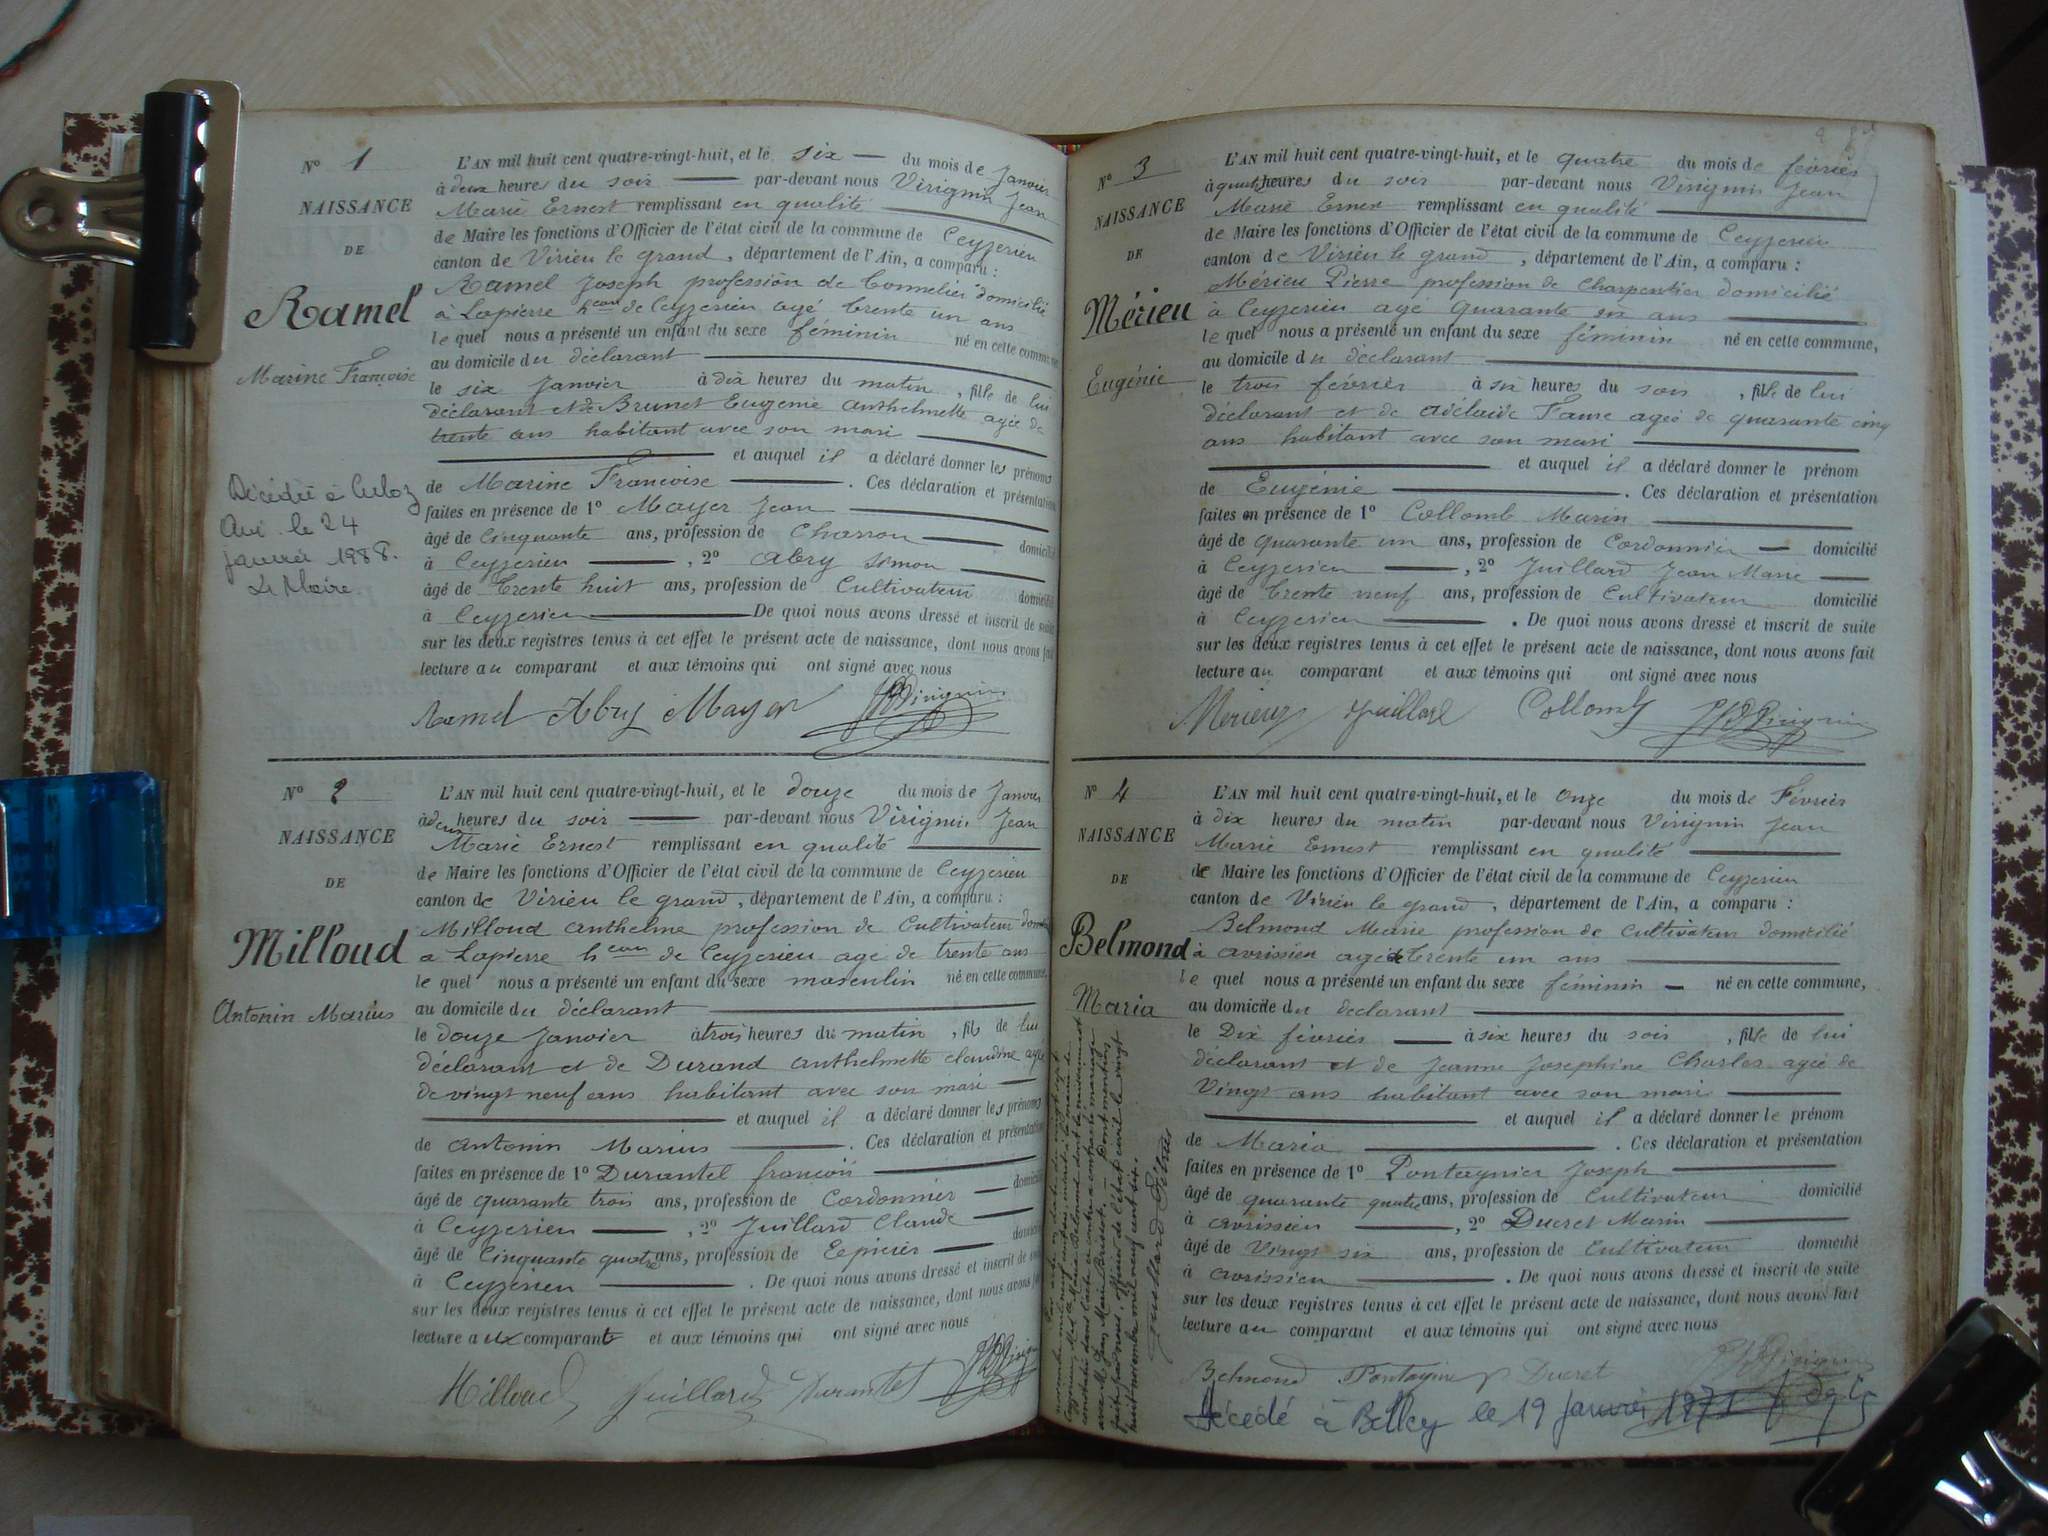 N° 1
NAISSANCE
DE
Ramel
Marine Françoise
Décédée à Culoz
Ain le 24
janvier 1988.
Le Maire
L'AN mil huit cent quatre-vingt-huit, et le six du mois de Janvier
à deux heures du soir par-devant nous Virignin Jean
Marie Ernest remplissant en qualité
de Maire les fonctions d'Officier de l'état civil de la commune de Ceyzerieu
canton de Virieu le grand, département de l'Ain, a comparu :
Ramel Joseph profession de Tonnelier domicilié
à Lapierre heau de Ceyzerieu agé trente un ans
le quel nous a présenté un enfant du sexe féminin né en cette commune,
au domicile du déclarant
le six Janvier à dix heures du matin, fille de lui
déclarant et de Brunet Eugenie Anthelmette agée de
trente ans habitant avec son mari
et auquel il a déclaré donner les prénoms
de Marine Françoise. Ces déclaration et présentation
faites en présence de 1° Mayer Jean
âgé de Cinquante ans, profession de Charron domicilié
à Ceyzerieu, 2° Abry Simon
âgé de Trente huit ans, profession de Cultivateur domicilié
à Ceyzerieu De quoi nous avons dressé et inscrit de suite
sur les deux registres tenus à cet effet le présent acte de naissance, dont nous avons fait
lecture au comparant et aux témoins qui ont signé avec nous
Ramel Abry Mayer Virignin
N° 2
NAISSANCE
DE
Milloud
Antonin Marius
L'AN mil huit cent quatre-vingt-huit, et le douze du mois de Janvier
à deux heures du soir par-devant nous Virignin Jean
Marie Ernest remplissant en qualité
de Maire les fonctions d'Officier de l'état civil de la commune de Ceyzerieu
canton de Virieu le grand, département de l'Ain, a comparu :
Milloud Anthelme profession de Cultivateur
a Lapierre heau de Ceyzerieu age de trente ans
le quel nous a présenté un enfant du sexe masculin né en cette commune,
au domicile du déclarant
le douze Janvier à trois heures du matin, fils de lui
déclarant et de Durand Anthelmette Claudine agée
de vingt neuf ans habitant avec son mari
et auquel il a déclaré donner les prénoms
de Antonin Marius. Ces déclaration et présentation
faites en présence de 1° Durantel François
âgé de quarante trois ans, profession de Cordonnier domicilié
à Ceyzerieu, 2° Juillard Claude
âgé de Cinquante quatre ans, profession de Epicier domicilié
à Ceyzerieu. De quoi nous avons dressé et inscrit de suite
sur les deux registres tenus à cet effet le présent acte de naissance, dont nous avons fait
lecture aux comparants et aux témoins qui ont signé avec nous
Milloud Juillard Durantel
N° 3
NAISSANCE
DE
Mérieu
Eugénie
L'AN mil huit cent quatre-vingt-huit, et le quatre du mois de février
à quatre heures du soir par-devant nous Virignin Jean
Marie Ernest remplissant en qualité
de Maire les fonctions d'Officier de l'état civil de la commune de Ceyzerieu
canton de Virieu le grand, département de l'Ain, a comparu :
Mérieu Pierre profession de Charpentier domicilié
à Ceyzerieu agé Quarante six ans
le quel nous a présenté un enfant du sexe féminin né en cette commune,
au domicile du déclarant
le trois février à six heures du soir, fille de lui
déclarant et de Adélaïde Fame agée de quarante cinq
ans habitant avec son mari
et auquel il a déclaré donner le prénom
de Eugénie. Ces déclaration et présentation
faites en présence de 1° Collomb Marin
âgé de quarante un ans, profession de Cordonnier domicilié
à Ceyzerieu, 2° Juillard Jean Marie
âgé de Trente neuf ans, profession de Cultivateur domicilié
à Ceyzerieu. De quoi nous avons dressé et inscrit de suite
sur les deux registres tenus à cet effet le présent acte de naissance, dont nous avons fait
lecture au comparant et aux témoins qui ont signé avec nous
Merieux Juillard Collomb Virignin
N° 4
NAISSANCE
DE
Belmond
Maria
L'AN mil huit cent quatre-vingt-huit, et le Onze du mois de Février
à dix heures du matin par-devant nous Virignin Jean
Marie Ernest remplissant en qualité
de Maire les fonctions d'Officier de l'état civil de la commune de Ceyzerieu
canton de Virieu le grand, département de l'Ain, a comparu :
Belmond Marie profession de Cultivateur domicilié
à avrissieu agé de trente un ans
le quel nous a présenté un enfant du sexe féminin né en cette commune,
au domicile du declarant
le Dix février à six heures du soir, fille de lui
déclarant et de Jeanne Josephine Charles agée de
Vingt ans habitant avec son mari
et auquel il a déclaré donner le prénom
de Maria. Ces déclaration et présentation
faites en présence de 1° Pontagnier Joseph
âgé de quarante quatre ans, profession de Cultivateur domicilié
à avrissieu, 2° Ducret Marin
âgé de Vingt six ans, profession de Cultivateur domicilié
à avrissieu. De quoi nous avons dressé et inscrit de suite
sur les deux registres tenus à cet effet le présent acte de naissance, dont nous avons fait
lecture au comparant et aux témoins qui ont signé avec nous
Belmond Pontagnier Ducret
Décédé à Belley le 19 janvier 1971